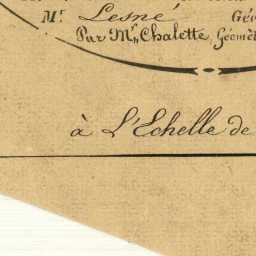 Mr. Lesné Gé
Par Mr. Chalette, Géomèt
à L'Echelle de